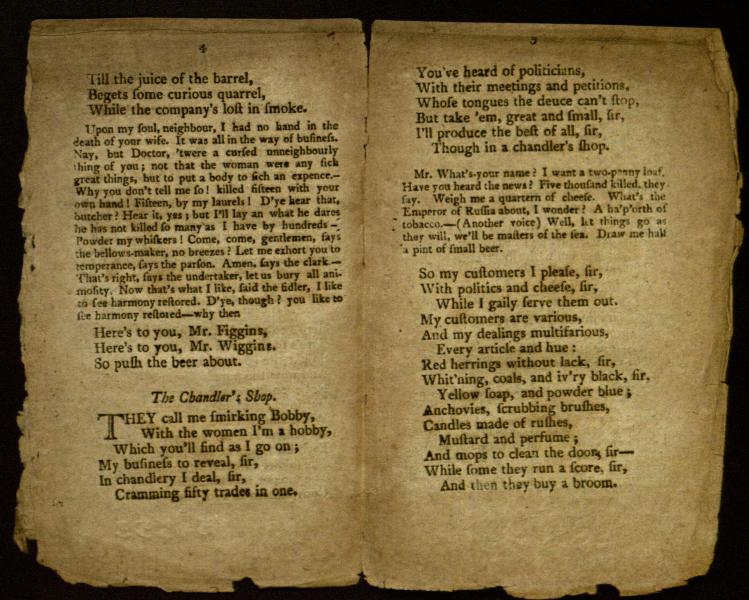 4
Till the juice of the barrel,
Begets ſome curious quarrel,
While the company's loſt in ſmoke.
Upon my ſoul, neighbour, I had no hand in the
death of your wife. It was all in the way of buſineſs.
Nay, but Doctor, 'twere a curſed unneighbourly
thing of you; not that the woman were any ſich
great things, but to put a body to ſich an expence.—
Why you don't tell me ſo! killed fifteen with your
own hand! Fifteen, by my laurels! D'ye hear that,
butcher? Hear it, yes; but I'll lay an what he dares
he has not killed ſo many as I have by hundreds—
Powder my whiſkers! Come, come, gentlemen, ſays
the bellows-maker, no breezes? Let me exhort you to
temperance, ſays the parſon. Amen, ſays the clark.—
That's right, ſays the undertaker, let us bury all ani-
moſity. Now that's what I like, ſaid the fidler, I like
to ſee harmony reſtored. D'ye, though? you like to
ſee harmony reſtored—why then
Here's to you, Mr. Figgins,
Here's to you, Mr. Wiggins.
So puſh the beer about.
The Chandler's Shop.
THEY call me ſmirking Bobby,
With the women I'm a hobby,
Which you'll find as I go on;
My buſineſs to reveal, ſir,
In chandlery I deal, ſir,
Cramming fifty trades in one.
5
You've heard of politicians,
With their meetings and petitions,
Whoſe tongues the deuce can't ſtop,
But take 'em, great and ſmall, ſir,
I'll produce the beſt of all, ſir,
Though in a chandler's ſhop.
Mr. What's-your name? I want a two-penny loaf.
Have you heard the news? Five thouſand killed, they
ſay. Weigh me a quartern of cheeſe. What's the
Emperor of Ruſſia about, I wonder? A ha'p'orth of
tobacco.—(Another voice) Well, let things go as
they will, we'll be maſters of the ſea. Draw me half
a pint of ſmall beer.
So my cuſtomers I pleaſe, ſir,
With politics and cheeſe, ſir,
While I gaily ſerve them out.
My cuſtomers are various,
And my dealings multifarious,
Every article and hue:
Red herrings without lack, ſir,
Whit'ning, coals, and iv'ry black, ſir,
Yellow ſoap, and powder blue;
Anchovies, ſcrubbing bruſhes,
Candles made of ruſhes,
Muſtard and perfume;
And mops to clean the door, ſir—
While ſome they run a ſcore, ſir,
And then they buy a broom.